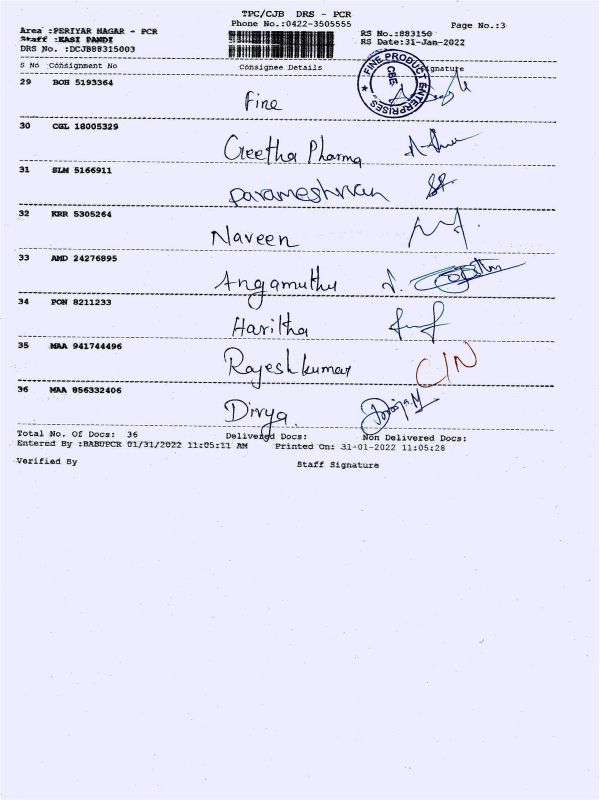 TPC/CJB DRS - PCR
Phone No.:0422-3505555
Page No.:3
Area :PERIYAR NAGAR - PCR
Staff :KASI PANDI
DRS No. :DCJB88315003
RS No.:883150
RS Date:31-Jan-2022
S No Consignment No Consignee Details Signature
29 BOH 5193364 Fine
FINE PRODUCT ENTERPRISES ★ CBE
30 CGL 18005329 Geetha Pharma
31 SLM 5166911 Parameshwaran
32 KRR 5305264 Naveen
33 AMD 24276895 Angamuthu
34 PON 8211233 Haritha
35 MAA 941744496 Rajesh kumar C/N
36 MAA 856332406 Divya
Total No. Of Docs: 36 Delivered Docs: Non Delivered Docs:
Entered By :BABUPCR 01/31/2022 11:05:11 AM Printed On: 31-01-2022 11:05:28
Verified By Staff Signature